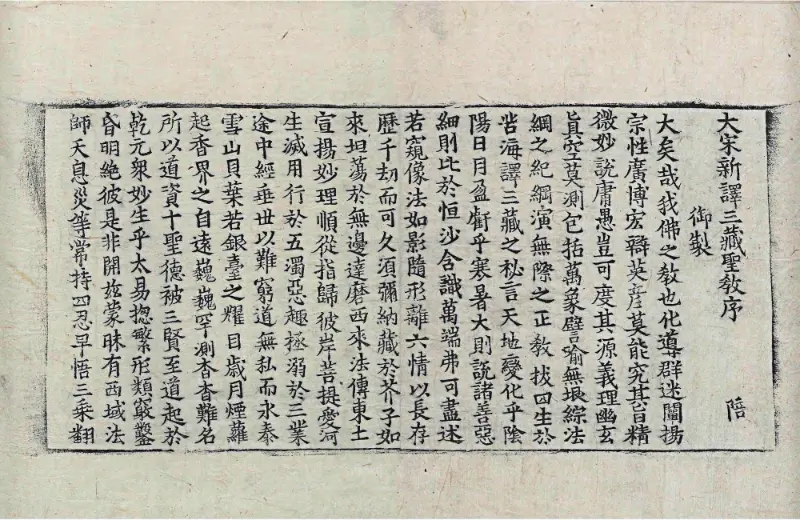 大宋新譯三藏聖敎序 陪
御製
大矣哉我佛之敎也化導群迷闡揚
宗性廣博宏辯英彦莫能究其旨精
微妙說庸愚豈可度其源義理幽玄
眞空莫測包括萬象譬喻無垠綜法
綱之紀綱演無際之正敎拔四生於
苦海譯三藏之秘言天地變化乎陰
陽日月盈虧乎寒暑大則說諸善惡
細則比於恒沙含識萬端弗可盡述
若窺像法如影隨形離六情以長存
歷千劫而可久須彌納藏於芥子如
來坦蕩於無邊達磨西來法傳東土
宣揚妙理順從指歸彼岸菩提愛河
生滅用行於五濁惡趣拯溺於三業
途中經垂世以難窮道無私而永泰
雪山貝葉若銀臺之耀目歲月煙蘿
起香界之自遠巍巍罕測杳杳難名
所以道資十聖德被三賢至道起於
乾元衆妙生乎太易揔繁形類竅鑿
昏明絶彼是非開玆蒙昧有西域法
師天息災等常持四忍早悟三乘翻